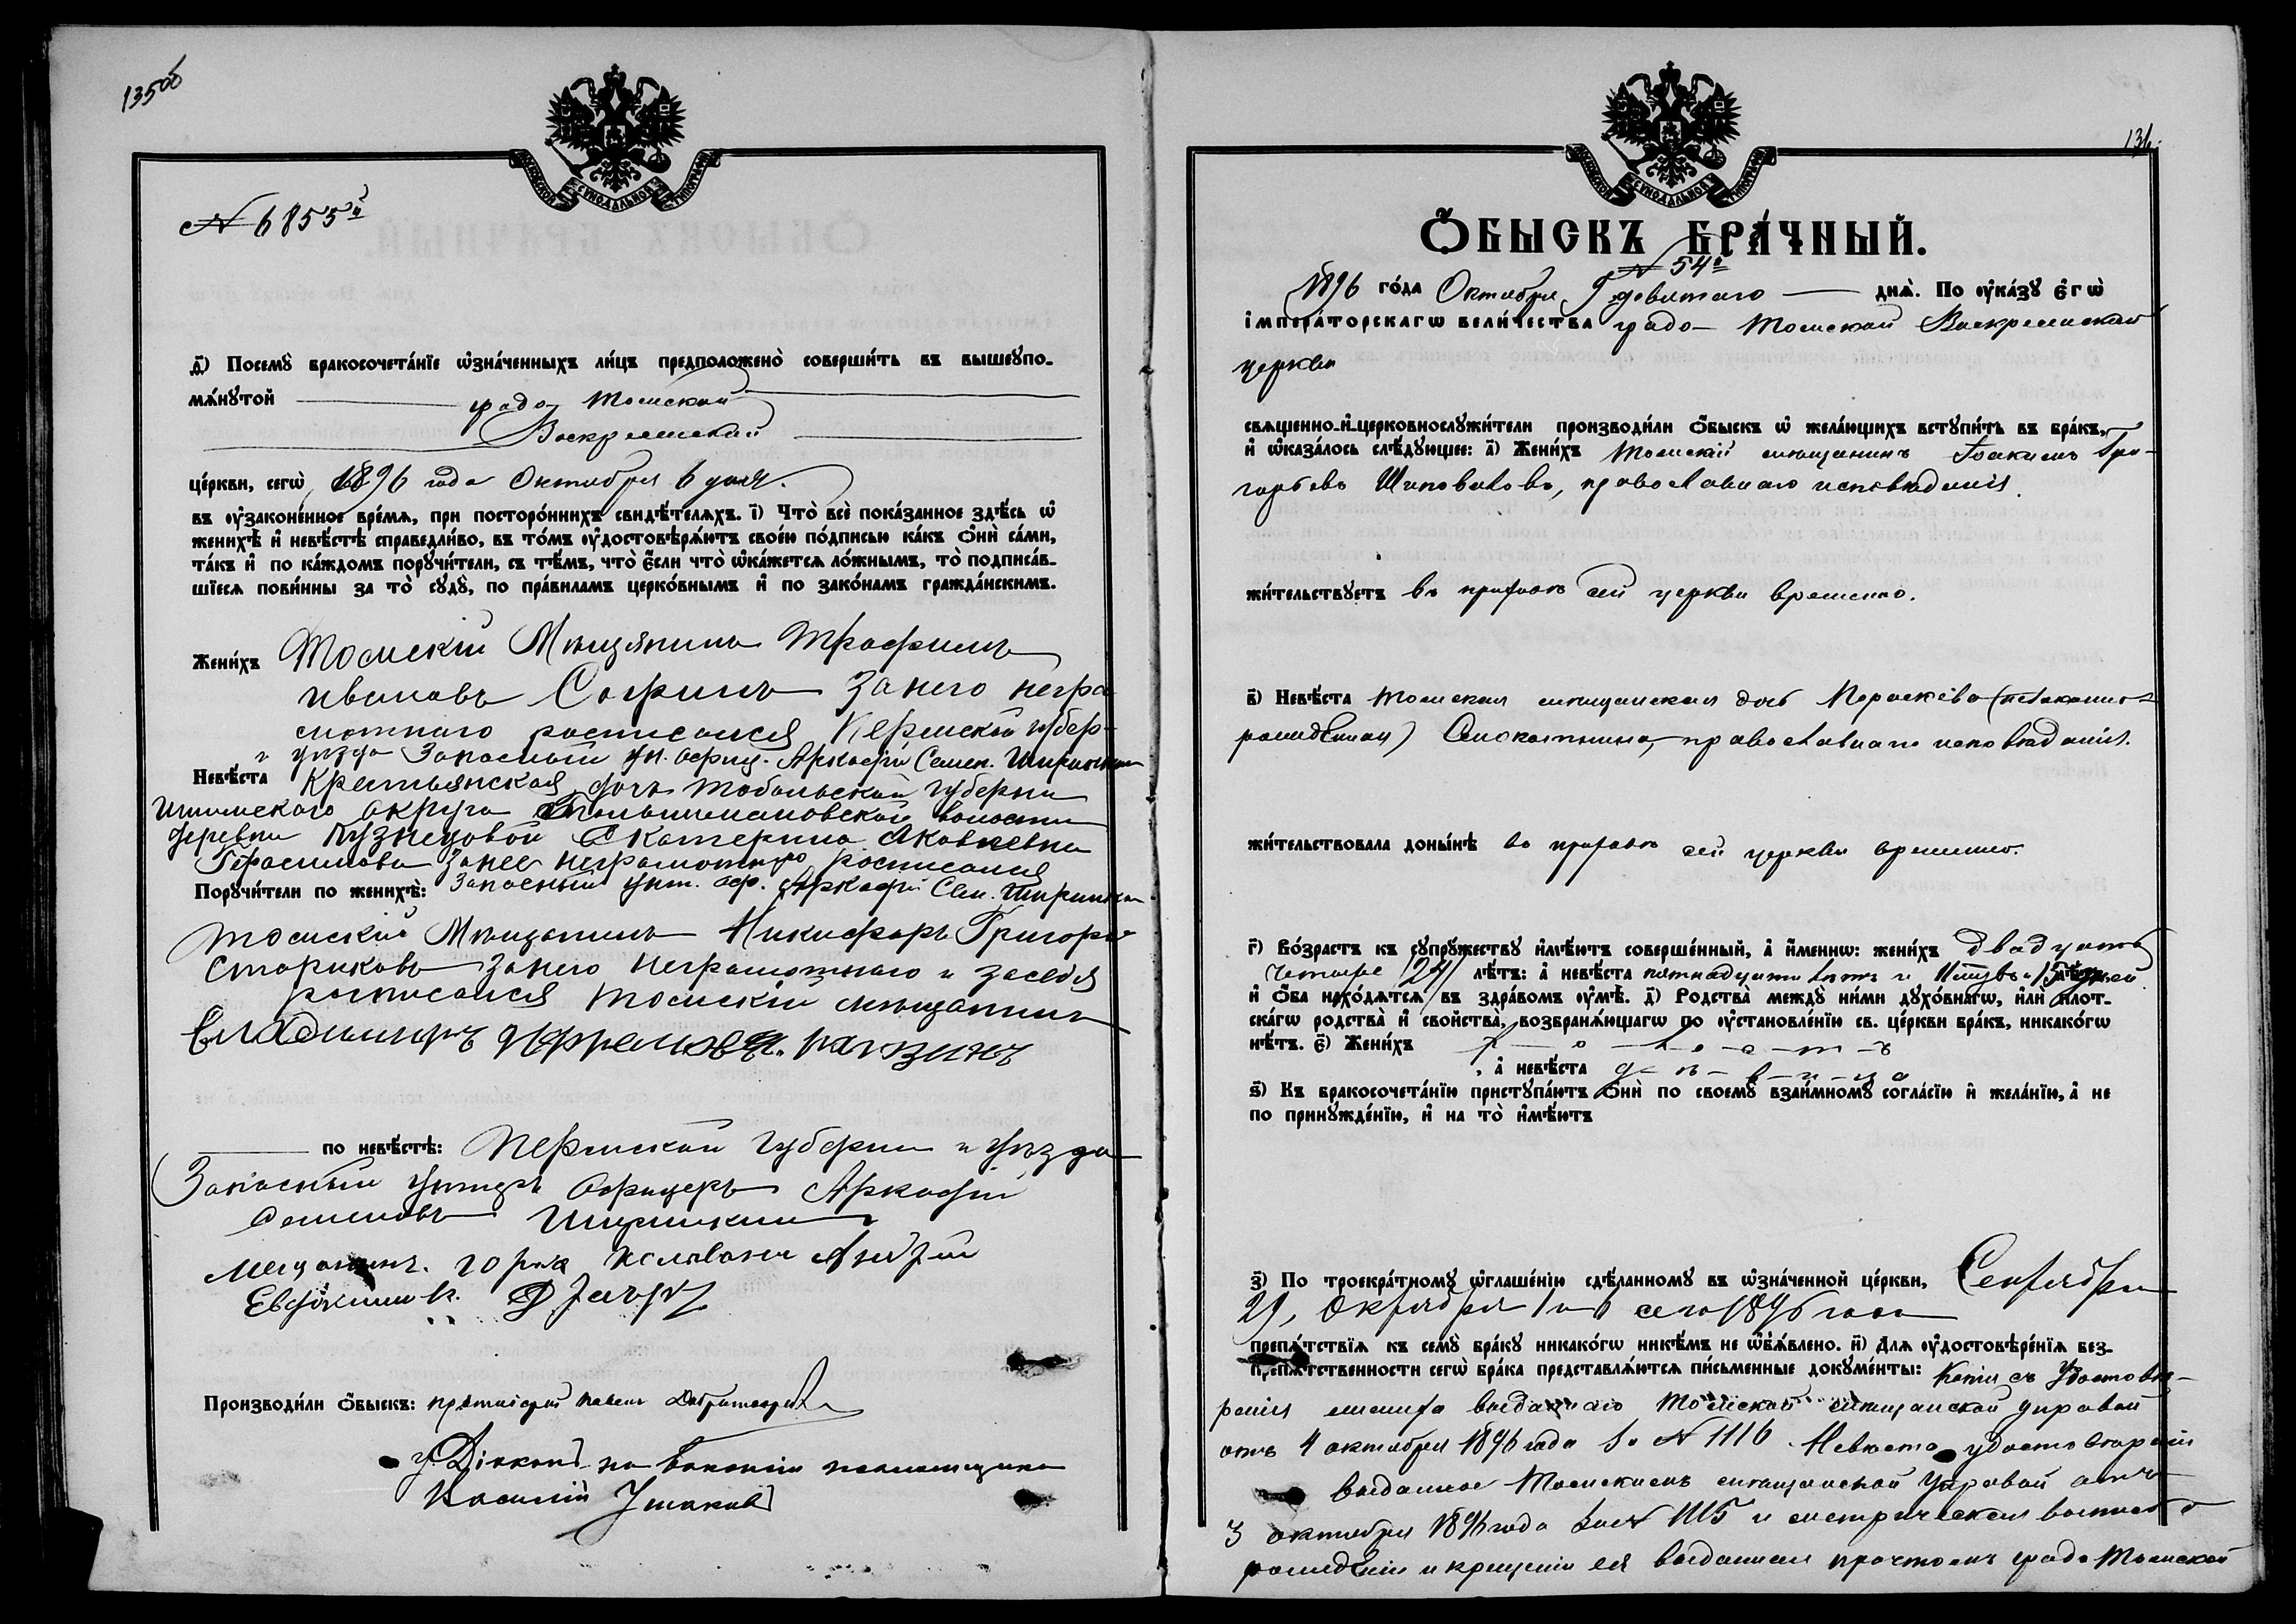 135 об
№ 6855й
МОСКОВСКОЙ СУНОДАЛЬНОЙ ТИПОГРАФІИ
д҃і) Посемꙋ̀ бракосочета́нїе ѡ҆зна́ченныхъ ли́цъ предположено̀ соверши́ть въ вышеꙋпо-
мѧ́нꙋтой градо-Томской
Воскресенской
це́ркви, сегѡ̀ 1896 года Октября 6 дня.
въ ᲂу҆зако́ненное вре́мѧ, при посторо́ннихъ свидѣ́телѧхъ. і҃) Что̀ всѐ пока́занное здѣ́сь ѡ҆
женихѣ̀ и҆ невѣ́стѣ справедли́во, въ то́мъ ᲂу҆достовѣрѧ́ютъ свое́ю по́дписью ка́къ ѻ҆нѝ са́ми,
та́къ и҆ по ка́ждомъ порꙋчи́тели, съ тѣ́мъ, что̀ є҆́сли что̀ ѡ҆ка́жетсѧ ло́жнымъ, то̀ подписа́в-
шїесѧ пови́нны за то̀ сꙋдꙋ̀, по пра́виламъ церко́внымъ и҆ по зако́намъ гражда́нскимъ.
Жени́хъ Томскій Мещанинъ Трофимъ
Ивановъ Согринъ за него негра-
мотнаго росписался Пермской губер-
и уѣзда Запасный ун. офиц. Аркадій Семен. Ширинкин
Невѣ́ста Крестьянская дочь Тобольской губерни
Ишимского округа волости
деревни Кузнецовой Екатерина Яковлевна
Герасимова за нее неграмотную росписался
Порꙋчи́тели по женихѣ̀: Запасный унт. оф. Аркадій Сем. Ширинкин
Томский Мещанинъ Никифоръ Григорьев
Стариковъ за него неграмотнаго и за себя
росписался Томскій мещанинъ
Владимиръ
по невѣ́стѣ: Пермской губерни и уѣзда
Запасный унтеръ офицеръ Аркадій
Семеновъ Ширинкин
мещанинъ города Колывани Андрей
Евдокимов.
Производи́ли ѻ҆́быскъ: протоіерей Павелъ
Діаконъ на вакансіи псаломщика
Василій Ушаковъ
136.
МОСКОВСКОЙ СУНОДАЛЬНОЙ ТИПОГРАФІИ
Ѻ҆́БЫСКЪ БРА́ЧНЫЙ.
№ 54й
1896 го́да Октября 9 девятаго днѧ̀. По ᲂу҆ка́зꙋ є҆гѡ̀
і҆мпера́торскагѡ вели́чества градо-Томской Воскресенской
церкви
свѧщенно-и҆-церковнослꙋжи́тели производи́ли ѻ҆́быскъ ѡ҆ жела́ющихъ встꙋпи́ть въ бра́къ,
и҆ ѡ҆каза́лось слѣ́дꙋющее: а҃) Жени́хъ Томскій мѣщанинъ Іоакимъ Гри-
горьевъ Шиповаловъ, православнаго исповѣданія.
жи́тельствꙋетъ въ приходѣ сей церкви временно.
в҃) Невѣ́ста Томская мѣщанская дочь Параскева (незаконно-
рожденная) православнаго исповѣданія.
жи́тельствовала доны́нѣ въ приходѣ сей церкви временно.
г҃) Во́зрастъ къ сꙋпрꙋ́жествꙋ и҆мѣ́ютъ соверше́нный, а҆ и҆́меннѡ: жени́хъ двадцать
четыре /24/ лѣ́тъ: а҆ невѣ́ста пятнадцати лѣтъ и
и҆ ѻ҆́ба нахо́дѧтсѧ въ здра́вомъ ᲂу҆мѣ̀. д҃) Родства̀ междꙋ̀ ни́ми дꙋхо́внагѡ, и҆лѝ плот-
ска́гѡ родства̀ и҆ сво́йства̀, возбранѧ́ющагѡ по ᲂу҆становле́нїю св. це́ркви бра́къ, никако́гѡ
нѣ́тъ. є҃) Жени́хъ х-о-л-о-с-т-ъ
, а҆ невѣ́ста д-ѣ-в-и-ц-а
ѕ҃) Къ бракосочета́нїю пристꙋпа́ютъ ѻ҆нѝ по своемꙋ̀ взаи́мномꙋ согла́сїю и҆ жела́нїю, а҆ не
по принꙋжде́нїю, и҆ на то̀ и҆мѣ́ютъ
з҃) По троекра́тномꙋ ѡ҆глаше́нїю сдѣ́ланномꙋ въ ѡ҆зна́ченной це́ркви, Сентября
29, Октября 1 и 6 сего 1896 года
препѧ́тствїѧ къ семꙋ̀ бра́кꙋ никако́гѡ никѣ́мъ не ѡ҆б̾ѧ́влено. и҃) Длѧ ᲂу҆достовѣре́нїѧ без-
препѧ́тственности сегѡ̀ бра́ка представлѧ́ютсѧ пи́сьменные докꙋме́нты: копія съ удостовѣ-
ренія жениха выданнаго Томской мѣщанской управой
отъ 4 октября 1896 года за № 1116. Невеста удостовѣреніе
выданное Томскимъ мѣщанской Управой отъ
3 октября 1896 года за № 1115 и метрическая выпись о
рожденіи и крещеніи ея выданная причтомъ градо Томской